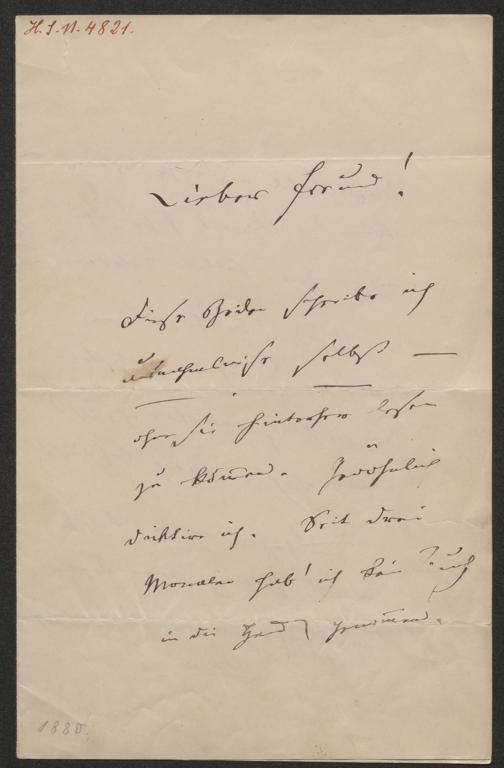 H.I.N. 4821.
Lieber Freund!
Diese Zeilen schreibe ich
ausnahmsweise selbst —
ohne sie hinterher lesen
zu können. Gewöhnlich
diktire ich. Seit drei
Monaten hab' ich kein Buch
in die Hand genommen.
1880.